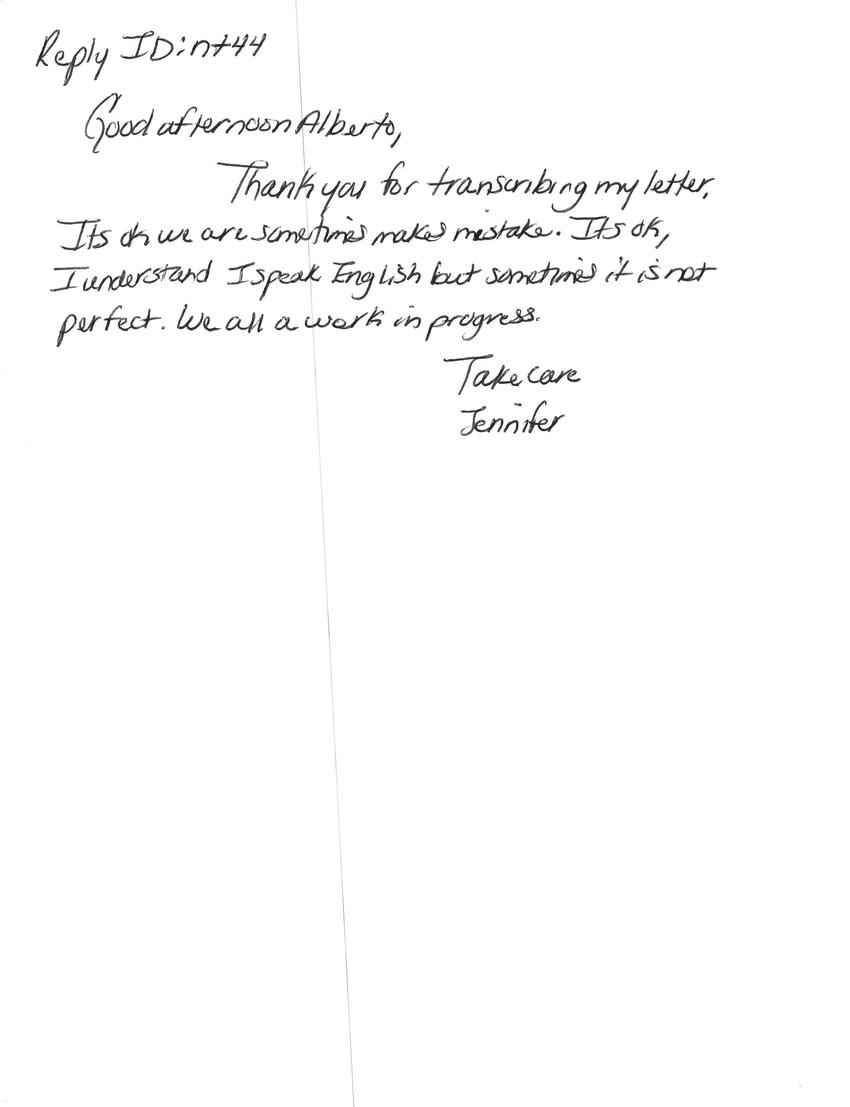 Reply ID: nt44
Good afternoon Alberto,
Thank you for transcribing my letter.
Its ok we are sometimes makes mistake. Its ok,
I understand I speak English but sometimes it is not
perfect. We all a work in progress.
Take care
Jennifer